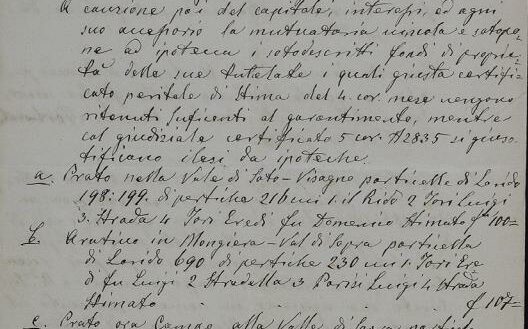 A cauzione poi del capitale, interessi, ed ogni
suo accessorio la mutuataria vincola e sotopo-
ne ad ipoteca i sotodescritti fondi di proprie-
tà delle sue tutelate i quali giusta certifi-
cato peritale di stima del 4. cor. mese vengono
ritenuti suficenti al garantimento, mentre
col giudiziale certificato 5 cor. N 2835 si gius-
tificano ilesi da ipoteche.
a. Prato nella Vale di Soto-Visagno particelle di Lorido
198: 199. di pertiche 216 mi 1. il Rido 2 Tori Luigi
3. Strada 4 Tori Eredi fu Domenico Stimato f 100=
b. Arativo in Mongiera - Val di Sopra particella
di Lorido 690 di pertiche 230 mi 1. Tori Ere
di fu Luigi 2 Stradella 3 Parisi Luigi 4 Strada
Stimato f 107=
c. Prato ora Campo alla Valle di